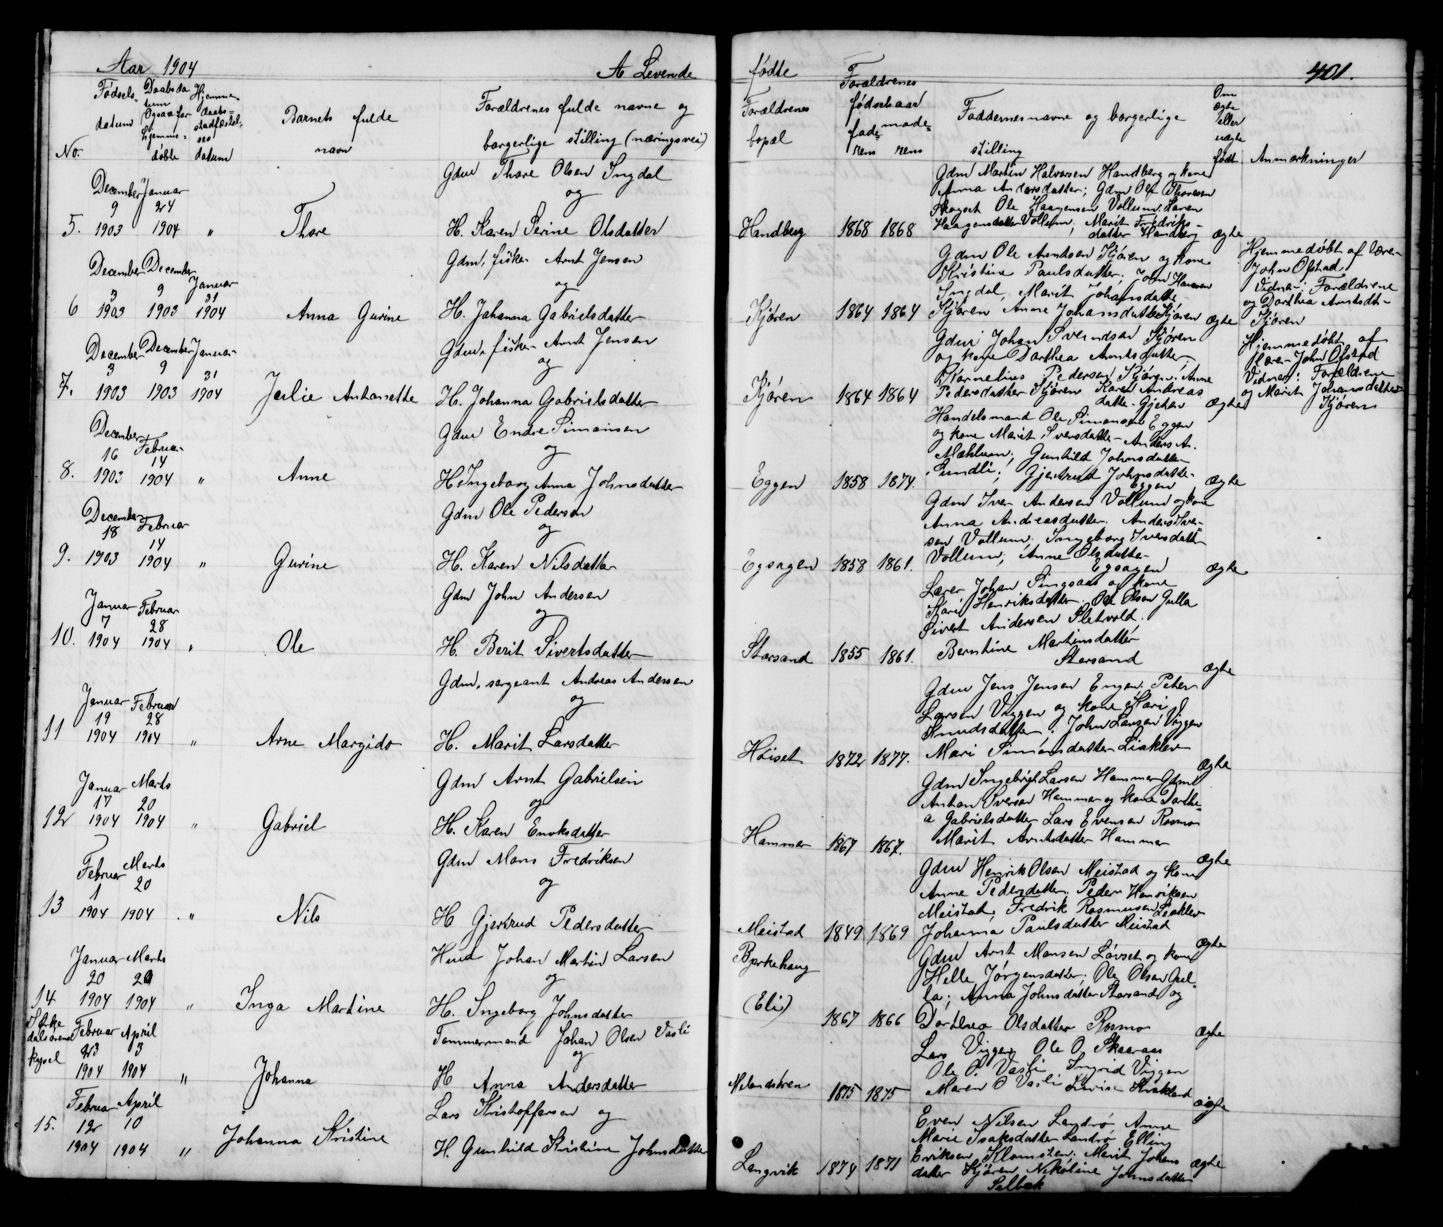 Aar 1904
A Levende
fødte
401.
No.
Fødsels
datum
døbte
datum
Barnets fulde
navn
Forældrenes fulde navne og
borgerlige stilling (næringsvei)
Forældrenes
bopæl
Forældrenes
fødselsaar
fade- mode-
rens rens
Faddernes navne og borgerlige
stilling
Om
ægte
eller
uægte
født
Anmærkninger
December Januar
9 24
5. 1903 1904 "
Thore
Gdm Thore Olsen Ingdal
og
H. Karen Serine Olsdatter
Handberg 1868 1868
Gdm Martin Halvorsen Handberg og kone
Anna Andersdatter; Gdm Ole Thoresen
Skogset Ole Haagensen Vollum, Karen
Haagensdatter Vollum, Marit Fredriks-
datter Handberg
ægte
December December Januar
3 9 31
6 1903 1903 1904
Anna Gurine
Gdm, fisker Arnt Jensen
og
H. Johanna Gabrielsdatter
Kjøren 1864 1864
Gdm Ole Arntsen Kjøren og kone
Kristine Paulsdatter, John Hansen
Ingdal, Marit Johansdatter
Kjøren Anne Johansdatter Kjøren
ægte
Hjemmedøbt af lærer
John Ofstad
Vidner: Forældrene
og Dorthea Arntsdtr
Kjøren
December December Januar
3 9 31
7. 1903 1903 1904
Julie Antonette
Gdm, fisker Arnt Jensen
og
H. Johanna Gabrielsdatter
Kjøren 1864 1864
Gdm Johan Svendsen Kjøren
og kone Dorthea Arntsdatter
Kornelius Pedersen Kjøren, Anne
Pedersdatter Kjøren Karen Andreas
datter Gjeten
ægte
Hjemmedøbt af
lærer John Ofstad
Vidner: Forældrene
og Marit Johansdatter
Kjøren
December Februar
16 14
8. 1903 1904 "
Anne
Gdm Endre Simonsen
og
H. Ingeborg Anna Johnsdatter
Eggen 1858 1874
Handelsmand Ole Simonsen Eggen
og kone Marit Iversdatter Anders A.
Mæhlum; Gunhild Johnsdatter
Lundli; Gjertrud Johnsdatter
Eggen
ægte
December Februar
18 14
9. 1903 1904 "
Gurine
Gdm Ole Pedersen
og
H. Karen Nilsdatter
Egsagen 1858 1861.
Gdm Iver Andersen Vollum og kone
Anna Andreasdatter. Anders Iver-
sen Vollum, Ingeborg Iversdatter
Vollum, Anne Olsdatter
Egsagen
ægte
Januar Februar
7 28
10. 1904 1904 "
Ole
Gdm John Andersen
og
H. Berit Sivertsdatter
Storsand 1855 1861.
Lærer Johan Singsaas og kone
Karen Henriksdatter. Ole Olsen Gulla
Sivert Andersen Sletvold.
Berntine Martinsdatter
Storsand
ægte
Januar Februar
19 28
11 1904 1904 "
Arne Margido
Gdm, sergeant Andreas Andersen
og
H. Marit Larsdatter
Høiset 1872 1877.
Gdm Jens Jensen Engen, Peter
Larsen Viggen og kone Kari
Knudsdatter, John Larsen Viggen
Mari Simonsdatter Liaklev
ægte
Januar Marts
17 20
12 1904 1904 "
Gabriel
Gdm Arnt Gabrielsen
og
H. Karen Enoksdatter
Hammer 1867 1867.
Gdm Ingebrigt Larsen Hammer Gdm
Anton Iversen Hammer og kone Dorthe-
a Gabrielsdatter Lars Evensen Rosmo
Marit Arntsdatter Hammer
ægte
Februar Marts
1 20
13 1904 1904 "
Nils
Gdm Mons Fredriksen
og
H Gjertrud Pedersdatter
Meistad 1849 1869
Gdm Henrik Olsen Meistad og kone
Anne Pedersdatter. Peder Henriksen
Meistad, Fredrik Rasmussen Liaklev
Johanna Paulsdatter Meistad
ægte
Januar Marts
20 20
14 1904 1904 "
Inga Martine
Hmd Johan Martin Larsen
og
H. Ingeborg Johnsdatter
Byrkehaug
(Eli) 1867 1866
Gdm Arnt Monsen Løvset og kone
Helle Jørgensdatter; Ole Olsen Gul-
la; Anna Johnsdatter Storsand og
Dorthea Olsdatter Rosmo
ægte
Februar April
23 3
1904 1904 "
Johanna
Tømmermand Johan Olsen Vasli
og
H Anna Andersdatter
1875 1875
Lars Viggen Ole O. Skaaraas
Ole O. Vasli Ingrid Viggen
Maren O Vasli
ægte
Februar April
12 10
15. 1904 1904 "
Johanna Kristine
Lars Kristoffersen og
H. Gunhild Kristine Johnsdatter
Langvik 1874 1871
Even Nilsen Landrø Anne
Marie Isaksdatter Landrø Elling
Eriksen Klomsten; Marit Johans
datter Kjøren, Nikoline Johnsdatter
Selbæk
ægte